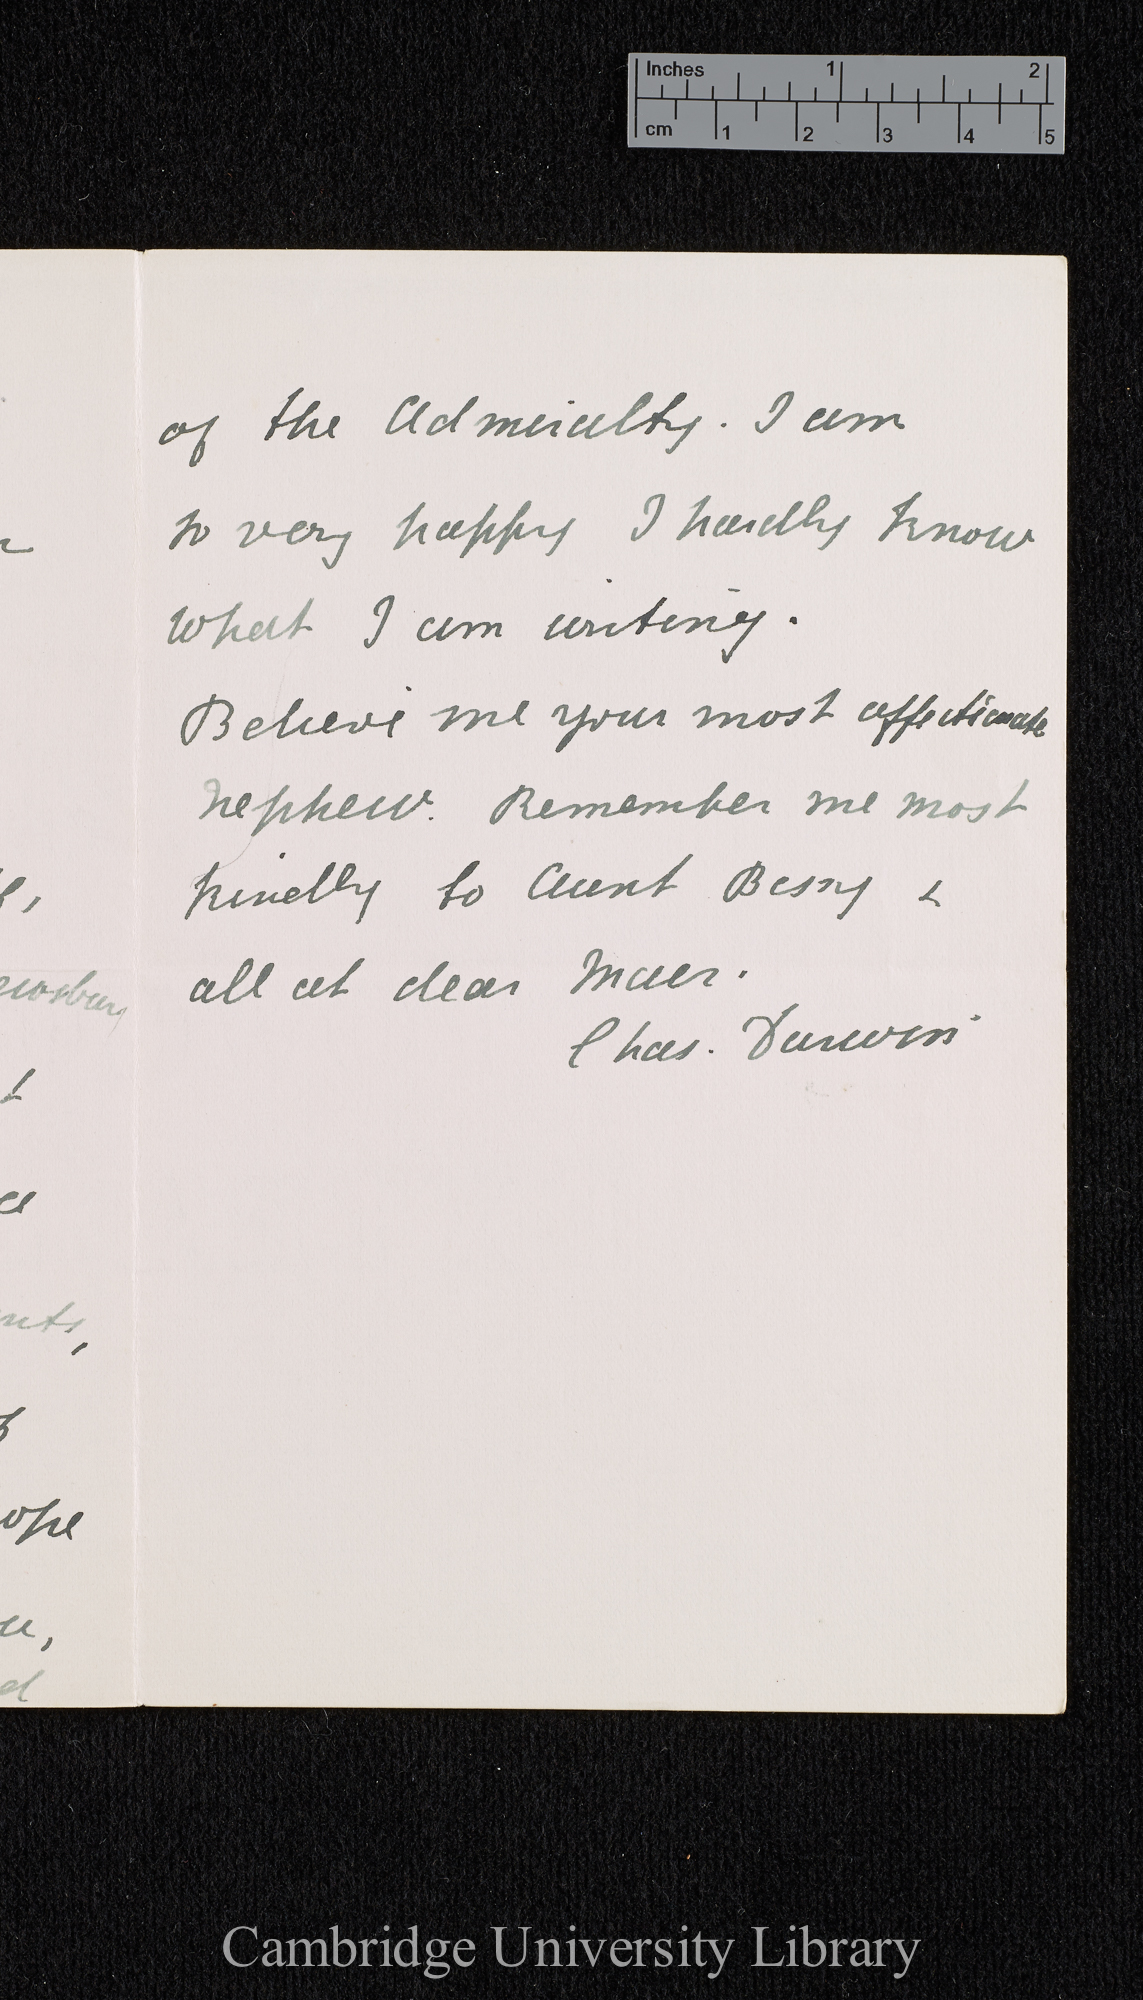 Inches 1 2
cm 1 2 3 4 5
of the Admiralty. I am
so very happy I hardly know
what I am writing.
Believe me your most affectionate
nephew. Remember me most
kindly to Aunt Bessy &
all at dear Maer.
Chas. Darwin
Cambridge University Library